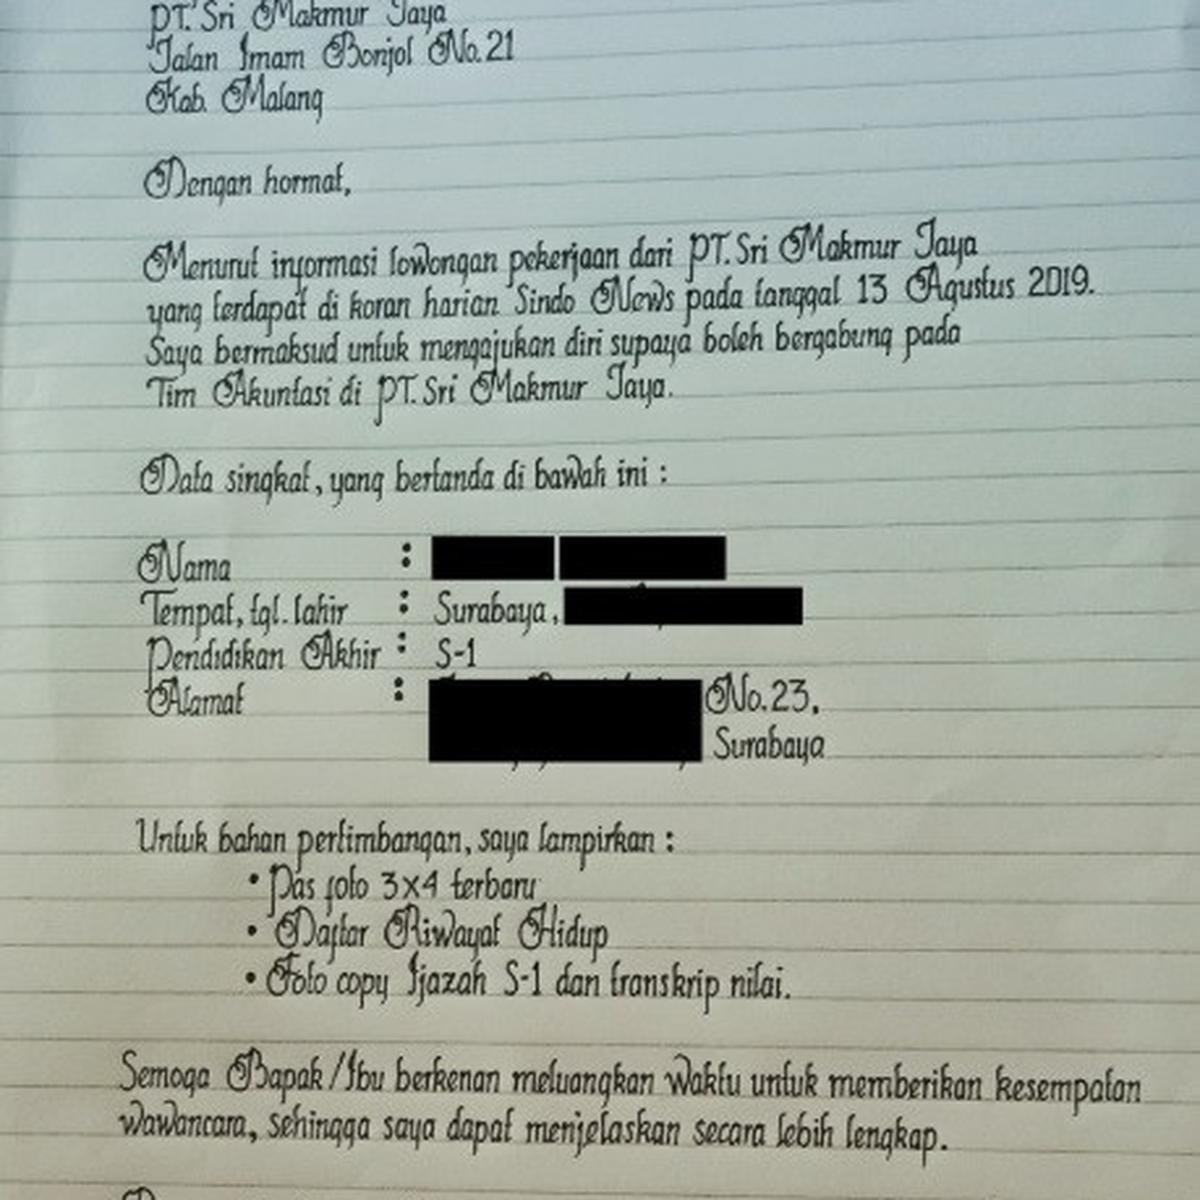 PT. Sri Makmur Jaya
Jalan Imam Bonjol No. 21
Kab. Malang
Dengan hormat,
Menurut informasi lowongan pekerjaan dari PT. Sri Makmur Jaya
yang terdapat di koran harian Sindo News pada tanggal 13 Agustus 2019.
Saya bermaksud untuk mengajukan diri supaya boleh bergabung pada
Tim Akuntasi di PT. Sri Makmur Jaya.
Data singkat, yang bertanda di bawah ini :
Nama :
Tempat, tgl. lahir : Surabaya,
Pendidikan Akhir : S-1
Alamat : No. 23,
Surabaya
Untuk bahan pertimbangan, saya lampirkan :
• Pas foto 3x4 terbaru
• Daftar Riwayat Hidup
• Foto copy Ijazah S-1 dan transkrip nilai.
Semoga Bapak/Ibu berkenan meluangkan waktu untuk memberikan kesempatan
wawancara, sehingga saya dapat menjelaskan secara lebih lengkap.